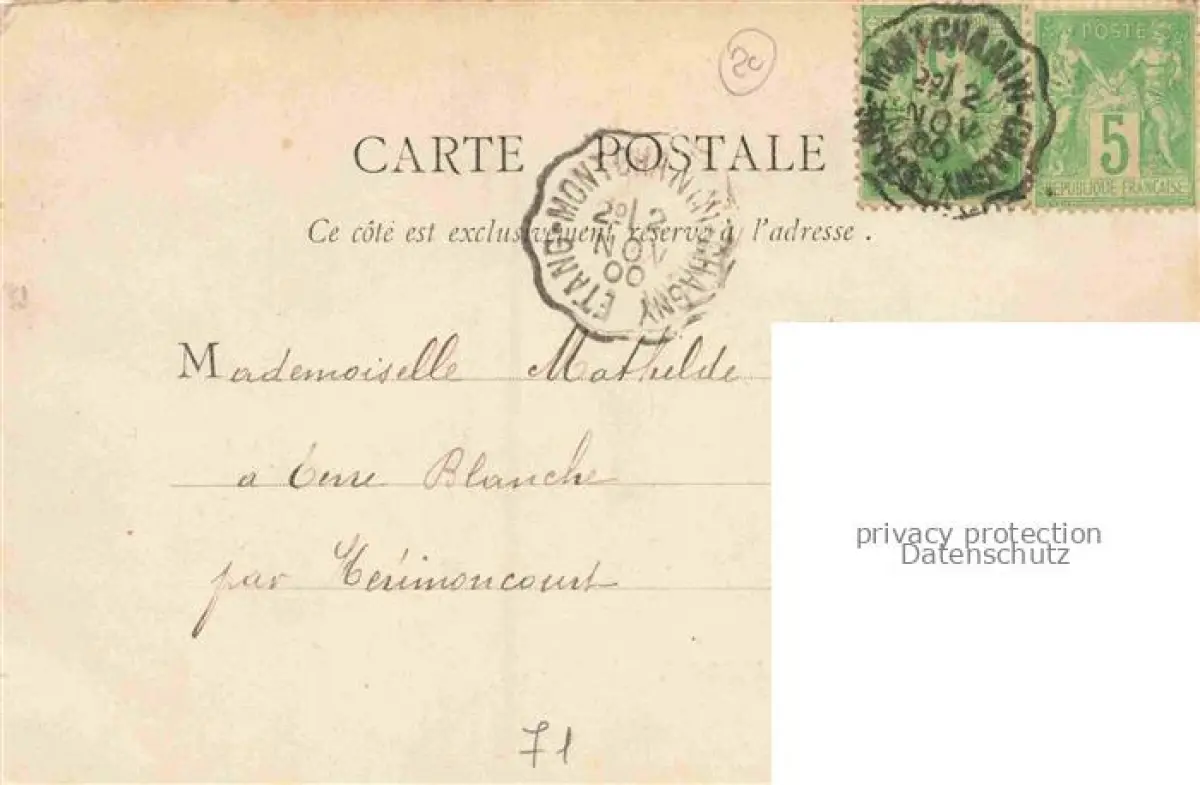 2c
POSTE
5
RÉPUBLIQUE FRANÇAISE
MONTCHANIN-CHAGNY
2
NOV
00
CARTE POSTALE
ETANG-MONTCHANIN-CHAGNY
2
NOV
00
Ce côté est exclusivement réservé à l'adresse .
Mademoiselle Mathilde
a Terre Blanche
par Hérimoncourt
71
privacy protection
Datenschutz